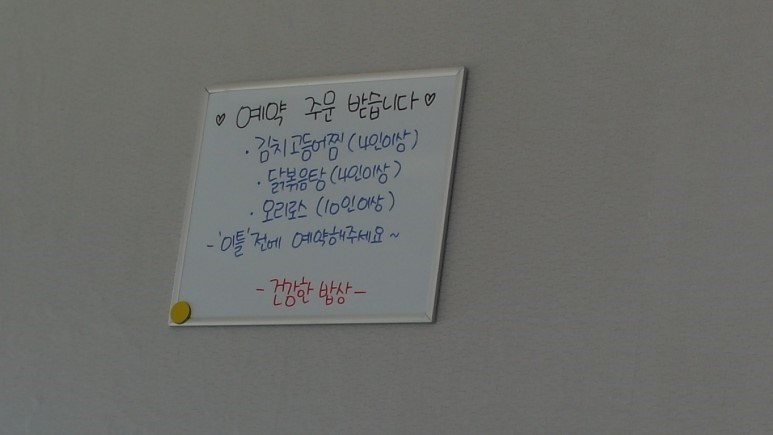 ♡ 예약 주문 받습니다 ♡
· 김치고등어찜 (4인이상)
· 닭볶음탕 (4인이상)
· 오리로스 (10인이상)
- '이틀' 전에 예약해주세요 ~
- 건강한 밥상 -